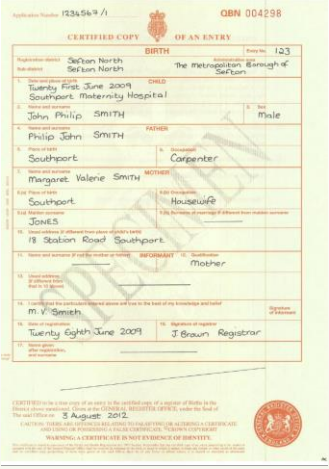 Application Number 1234567/1
QBN 004298
CERTIFIED COPY OF AN ENTRY
BIRTH
Entry No. 123
Registration district Sefton North
Administrative area
Sub-district Sefton North
The Metropolitan Borough of Sefton
1. Date and place of birth CHILD
Twenty First June 2009
Southport Maternity Hospital
2. Name and surname
3. Sex
John Philip SMITH
Male
4. Name and surname FATHER
Philip John SMITH
5. Place of birth
6. Occupation
Southport
Carpenter
7. Name and surname MOTHER
Margaret Valerie SMITH
8.(a) Place of birth
8.(b) Occupation
Southport
Housewife
9.(a) Maiden surname
9.(b) Surname at marriage if different from maiden surname
JONES
10. Usual address (if different from place of child's birth)
18 Station Road Southport
11. Name and surname (if not the mother or father) INFORMANT
12. Qualification
Mother
13. Usual address
(if different from
that in 10 above)
14. I certify that the particulars entered above are true to the best of my knowledge and belief
M.V. Smith
Signature
of informant
15. Date of registration
16. Signature of registrar
Twenty Eighth June 2009
J. Brown Registrar
17. Name given
after registration,
and surname
SPECIMEN
CERTIFIED to be a true copy of an entry in the certified copy of a register of Births in the
District above mentioned. Given at the GENERAL REGISTER OFFICE, under the Seal of
The said Office on 3 August 2012
CAUTION: THERE ARE OFFENCES RELATING TO FALSIFYING OR ALTERING A CERTIFICATE
AND USING OR POSSESSING A FALSE CERTIFICATE. ©CROWN COPYRIGHT
WARNING: A CERTIFICATE IS NOT EVIDENCE OF IDENTITY.